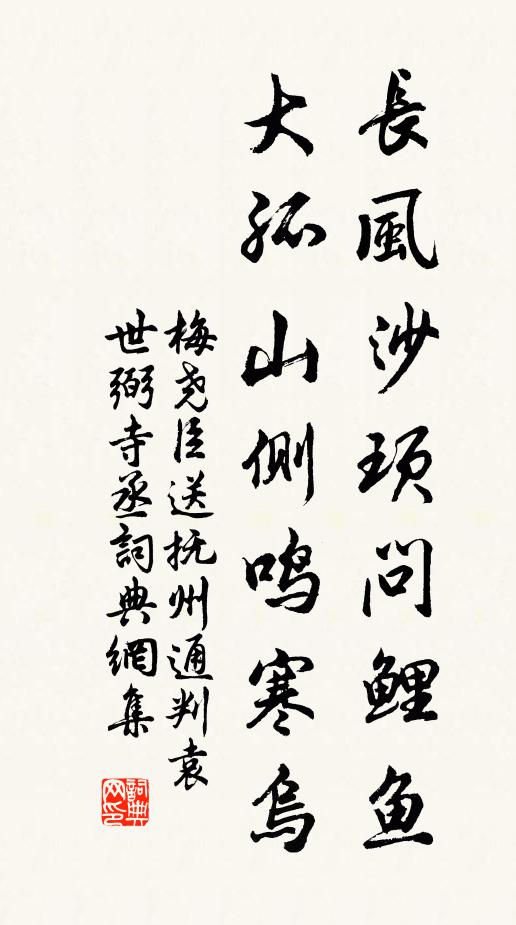 長風沙頭問鯉魚
大孤山側鳴寒烏
梅堯臣送抚州通判袁
世弼寺丞詞典網集
詞典
网印